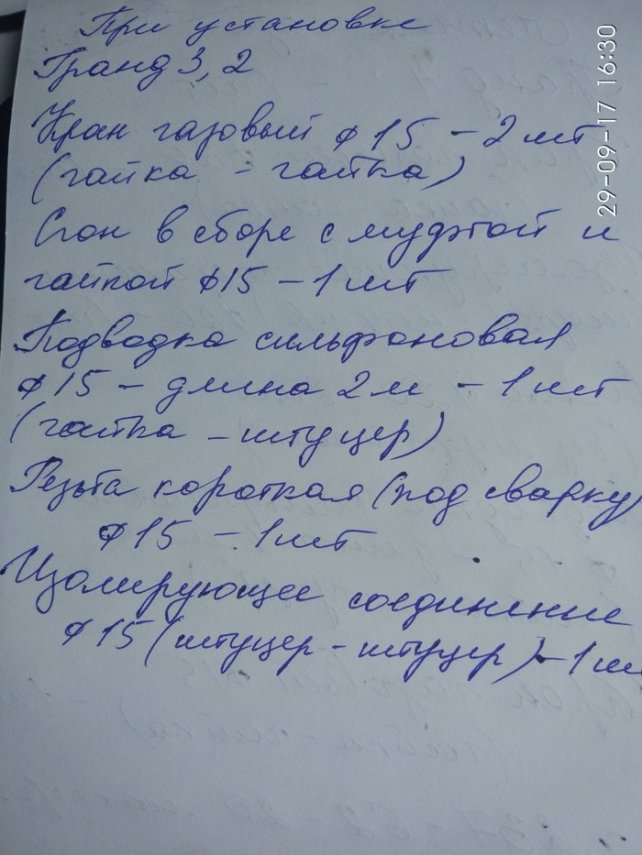 При установке
Гранд 3,2
Кран газовый ø 15 – 2 шт
(гайка – гайка)
Сгон в сборе с муфтой и
гайкой ø15 – 1 шт
Подводка сильфоновая
ø 15 – длина 2 м – 1 шт
(гайка – штуцер)
Резьба короткая (под сварку)
ø 15 – 1 шт
Изолирующее соединение
ø 15 (штуцер – штуцер) – 1 ш
29-09-17 16:30